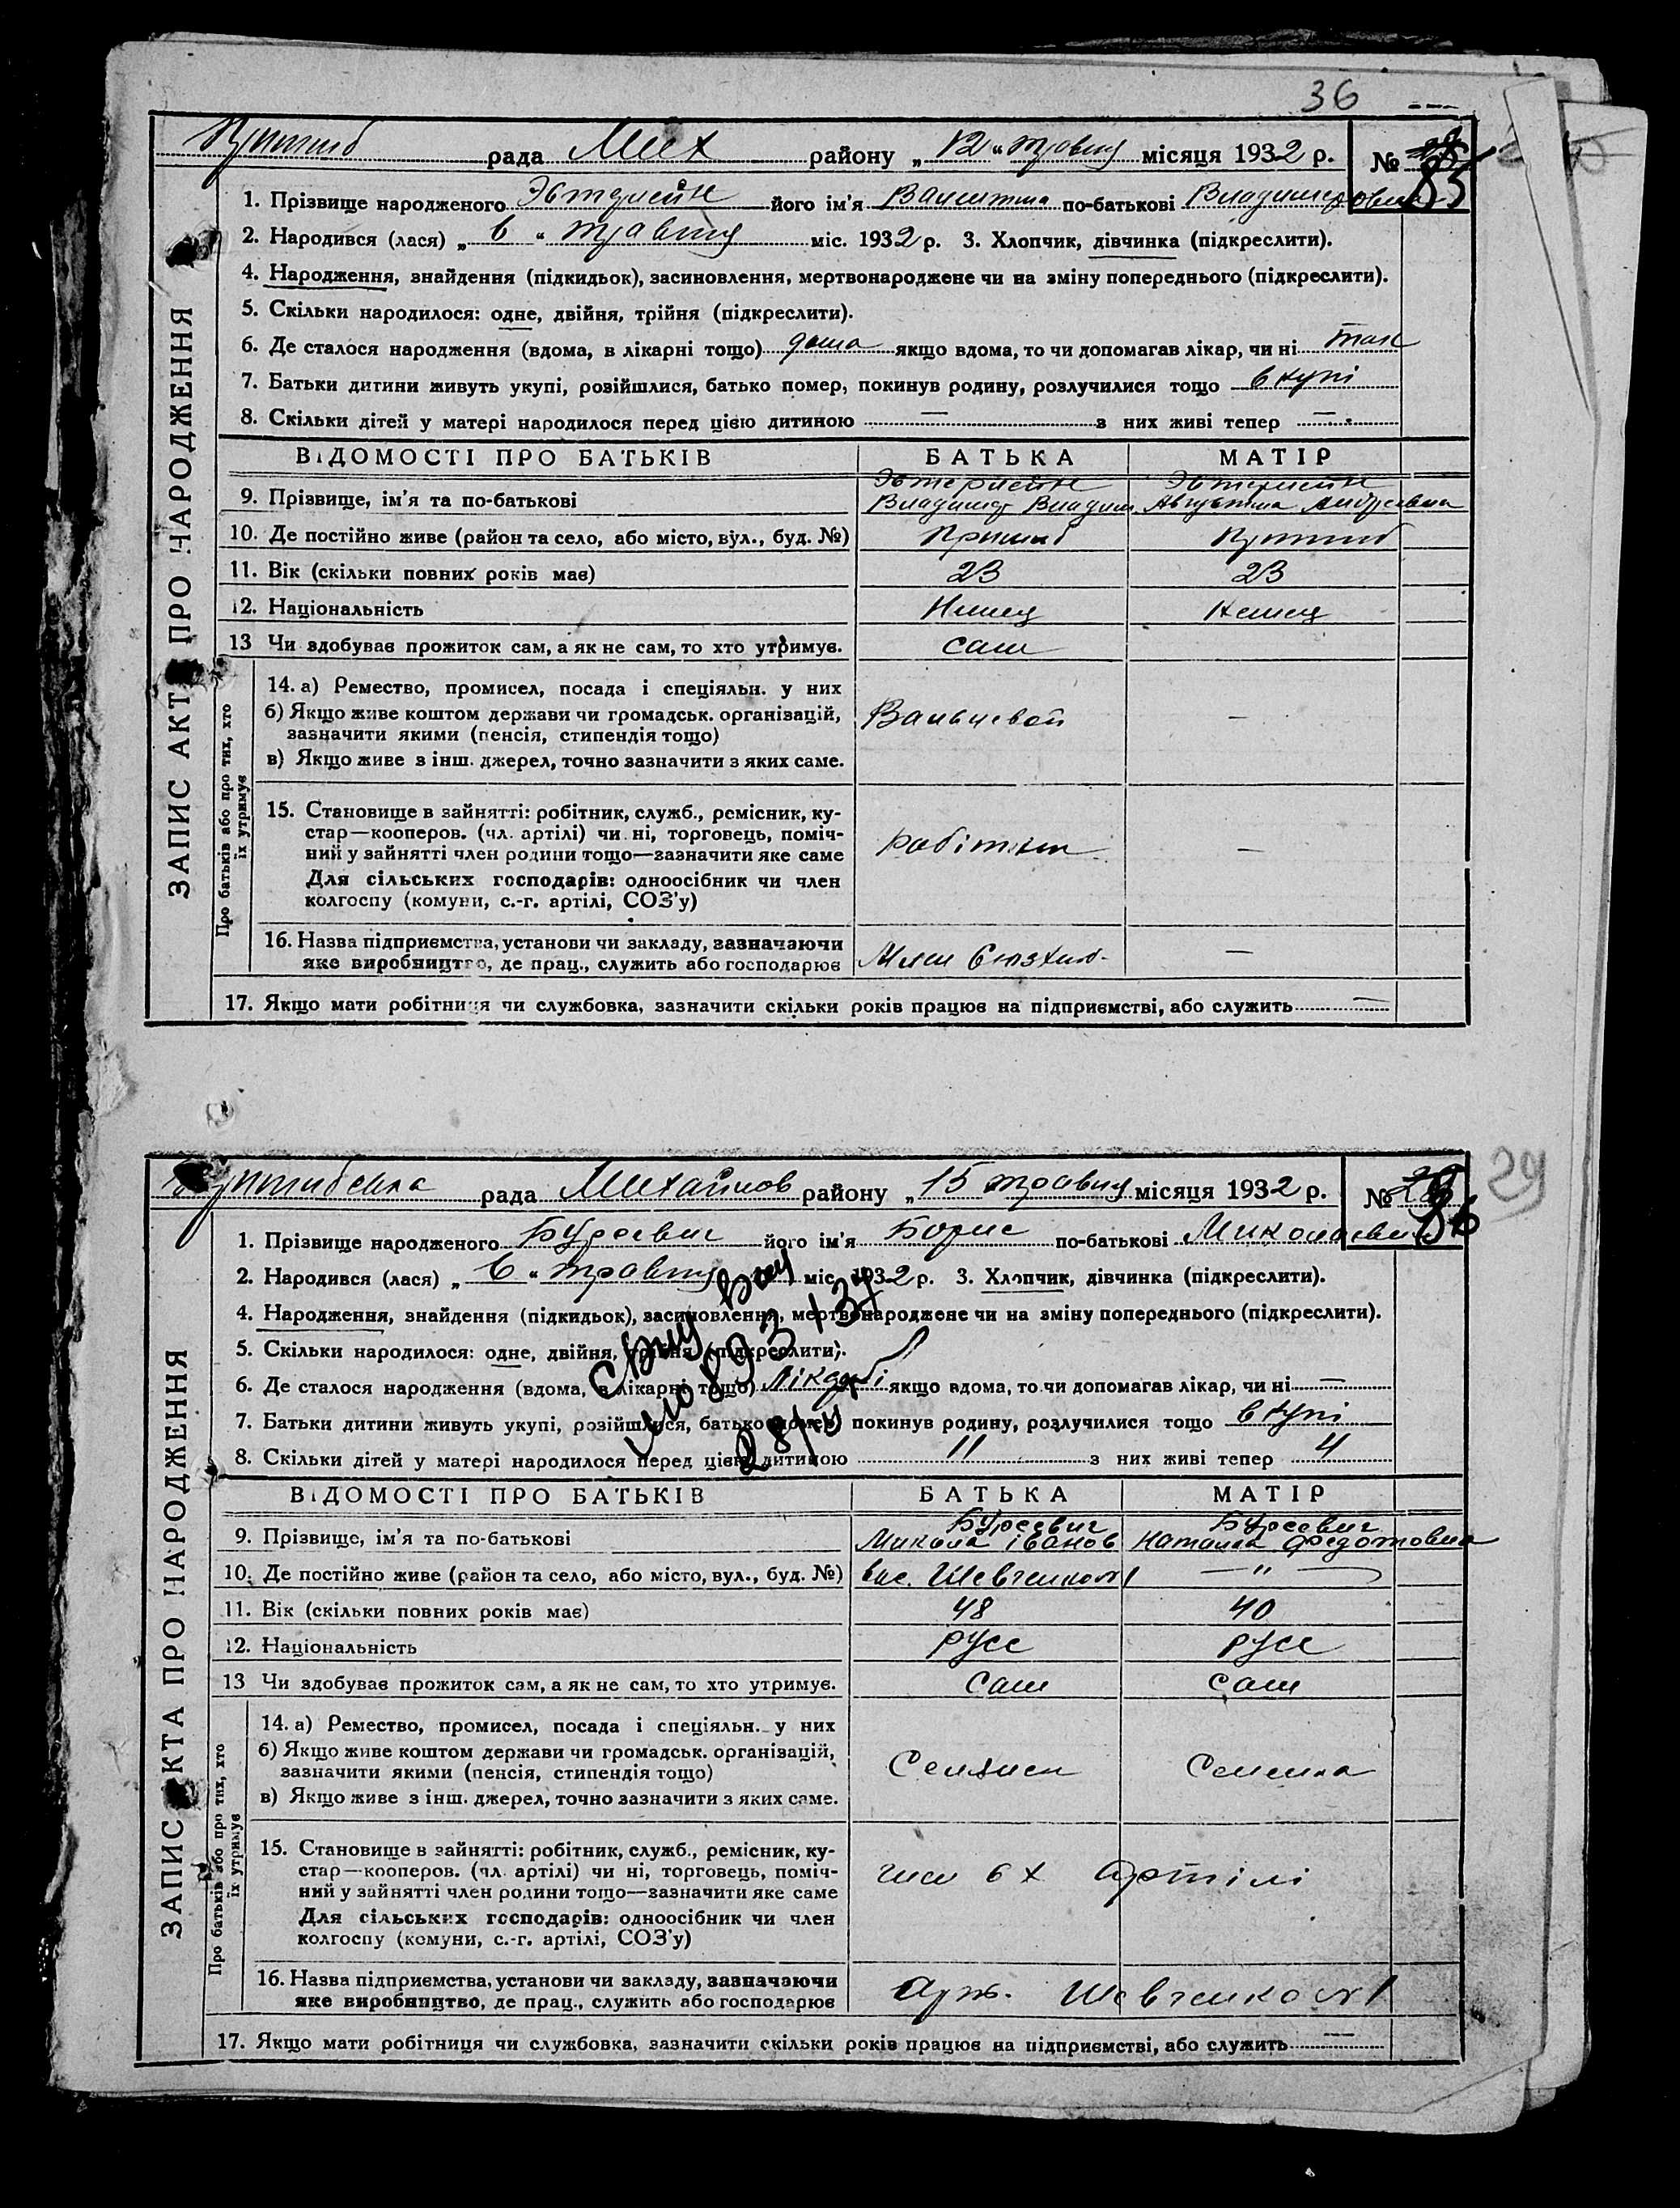 36
Пришиб рада Мих району „ 12 “ травня місяця 1932 р. № 85
1. Прізвище народженого його ім'я Валентина по-батькові Владимировна
2. Народився (лася) „ 6 “ травня міс. 1932 р. 3. Хлопчик, дівчинка (підкреслити).
4. Народження, знайдення (підкидьок), засиновлення, мертвонароджене чи на зміну попереднього (підкреслити).
5. Скільки народилося: одне, двійня, трійня (підкреслити).
6. Де сталося народження (вдома, в лікарні тощо) дома якщо вдома, то чи допомагав лікар, чи ні так
7. Батьки дитини живуть укупі, розійшлися, батько помер, покинув родину, розлучилися тощо вкупі
8. Скільки дітей у матері народилося перед цією дитиною — з них живі тепер —
ЗАПИС АКТА ПРО НАРОДЖЕННЯ
ВІДОМОСТІ ПРО БАТЬКІВ БАТЬКА МАТІР
9. Прізвище, ім'я та по-батькові Владимир Владим Августина Андреевна
10. Де постійно живе (район та село, або місто, вул., буд. №) Пришиб Пришиб
11. Вік (скільки повних років має) 23 23
12. Національність Немец Немец
13 Чи здобуває прожиток сам, а як не сам, то хто утримує. сам
Про батьків або про тих, хто їх утримує
14. а) Ремество, промисел, посада і спеціяльн. у них
б) Якщо живе коштом держави чи громадськ. організацій,
зазначити якими (пенсія, стипендія тощо) Вальцевой —
в) Якщо живе з інш. джерел, точно зазначити з яких саме.
15. Становище в зайнятті: робітник, служб., ремісник, ку-
стар—кооперов. (чл. артілі) чи ні, торговець, поміч-
ний у зайнятті член родини тощо—зазначити яке саме робітник —
Для сільських господарів: одноосібник чи член
колгоспу (комуни, с.-г. артілі, СОЗ'у)
16. Назва підприємства, установи чи закладу, зазначаючи
яке виробництво, де прац., служить або господарює Млин Союзхліб —
17. Якщо мати робітниця чи службовка, зазначити скільки років працює на підприємстві, або служить —
29
рада Михайлов району „ 15 травня місяця 1932 р. № 86
1. Прізвище народженого Бурсевич його ім'я Борис по-батькові Миколаевич
2. Народився (лася) „ 6 “ травня міс. 1932 р. 3. Хлопчик, дівчинка (підкреслити).
4. Народження, знайдення (підкидьок), засиновлення, мертвонароджене чи на зміну попереднього (підкреслити).
5. Скільки народилося: одне, двійня, трійня (підкреслити).
6. Де сталося народження (вдома, в лікарні тощо) Лікарні якщо вдома, то чи допомагав лікар, чи ні —
7. Батьки дитини живуть укупі, розійшлися, батько помер, покинув родину, розлучилися тощо вкупі
8. Скільки дітей у матері народилося перед цією дитиною 11 з них живі тепер 4
ЗАПИС АКТА ПРО НАРОДЖЕННЯ
ВІДОМОСТІ ПРО БАТЬКІВ БАТЬКА МАТІР
Бурсевич Бурсевич
9. Прізвище, ім'я та по-батькові Микола іванов Наталка Федотовна
10. Де постійно живе (район та село, або місто, вул., буд. №) Шевченко №1 — " —
11. Вік (скільки повних років має) 48 40
12. Національність русс русс
13 Чи здобуває прожиток сам, а як не сам, то хто утримує. Сам Сам
Про батьків або про тих, хто їх утримує
14. а) Ремество, промисел, посада і спеціяльн. у них
б) Якщо живе коштом держави чи громадськ. організацій,
зазначити якими (пенсія, стипендія тощо)
в) Якщо живе з інш. джерел, точно зазначити з яких саме.
15. Становище в зайнятті: робітник, служб., ремісник, ку-
стар—кооперов. (чл. артілі) чи ні, торговець, поміч-
ний у зайнятті член родини тощо—зазначити яке саме член с х Артілі
Для сільських господарів: одноосібник чи член
колгоспу (комуни, с.-г. артілі, СОЗ'у)
16. Назва підприємства, установи чи закладу, зазначаючи
яке виробництво, де прац., служить або господарює Арт. Шевченко №1
17. Якщо мати робітниця чи службовка, зазначити скільки років працює на підприємстві, або служить —